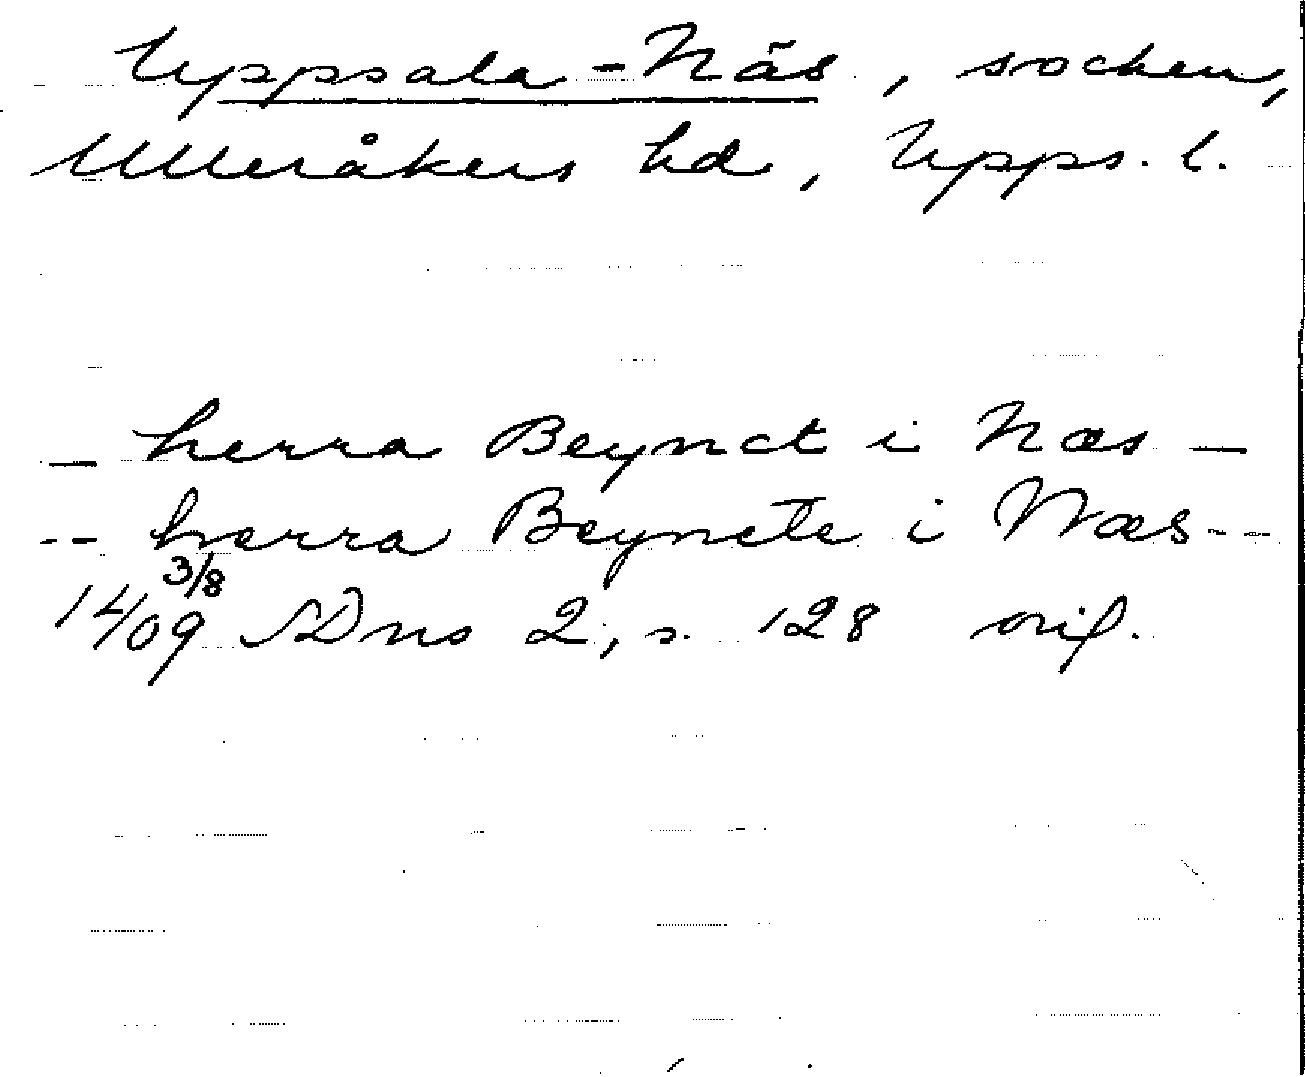 Uppsala-Näs, socken,
Ulleråkers hd, Upps. l.
- herra Beynct i Næs -
-- herra Beyncte i Næs--
14 3/8 09 SDns 2, s. 128 orig.